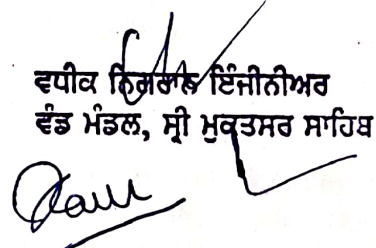 ਵਧੀਕ ਨਿਗਰਾਨ ਇੰਜੀਨੀਅਰ
ਵੰਡ ਮੰਡਲ, ਸ੍ਰੀ ਮੁਕਤਸਰ ਸਾਹਿਬ